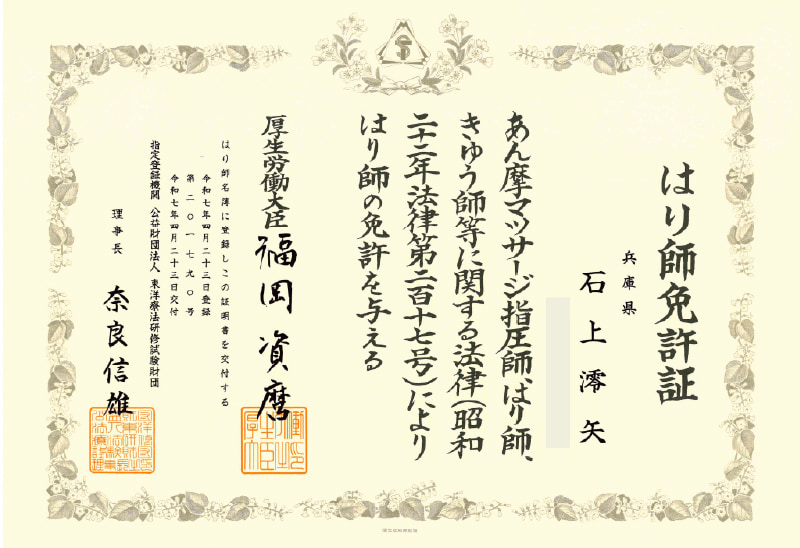 はり師免許証
兵庫県
石上澪矢
あん摩マッサージ指圧師、はり師、
きゆう師等に関する法律(昭和
二十二年法律第二百十七号)により
はり師の免許を与える
厚生労働大臣 福岡資麿
はり師名簿に登録しこの証明書を交付する
令和七年四月二十三日登録
第二〇一七九〇号
令和七年四月二十三日交付
指定登録機関 公益財団法人 東洋療法研修試験財団
理事長 奈良信雄